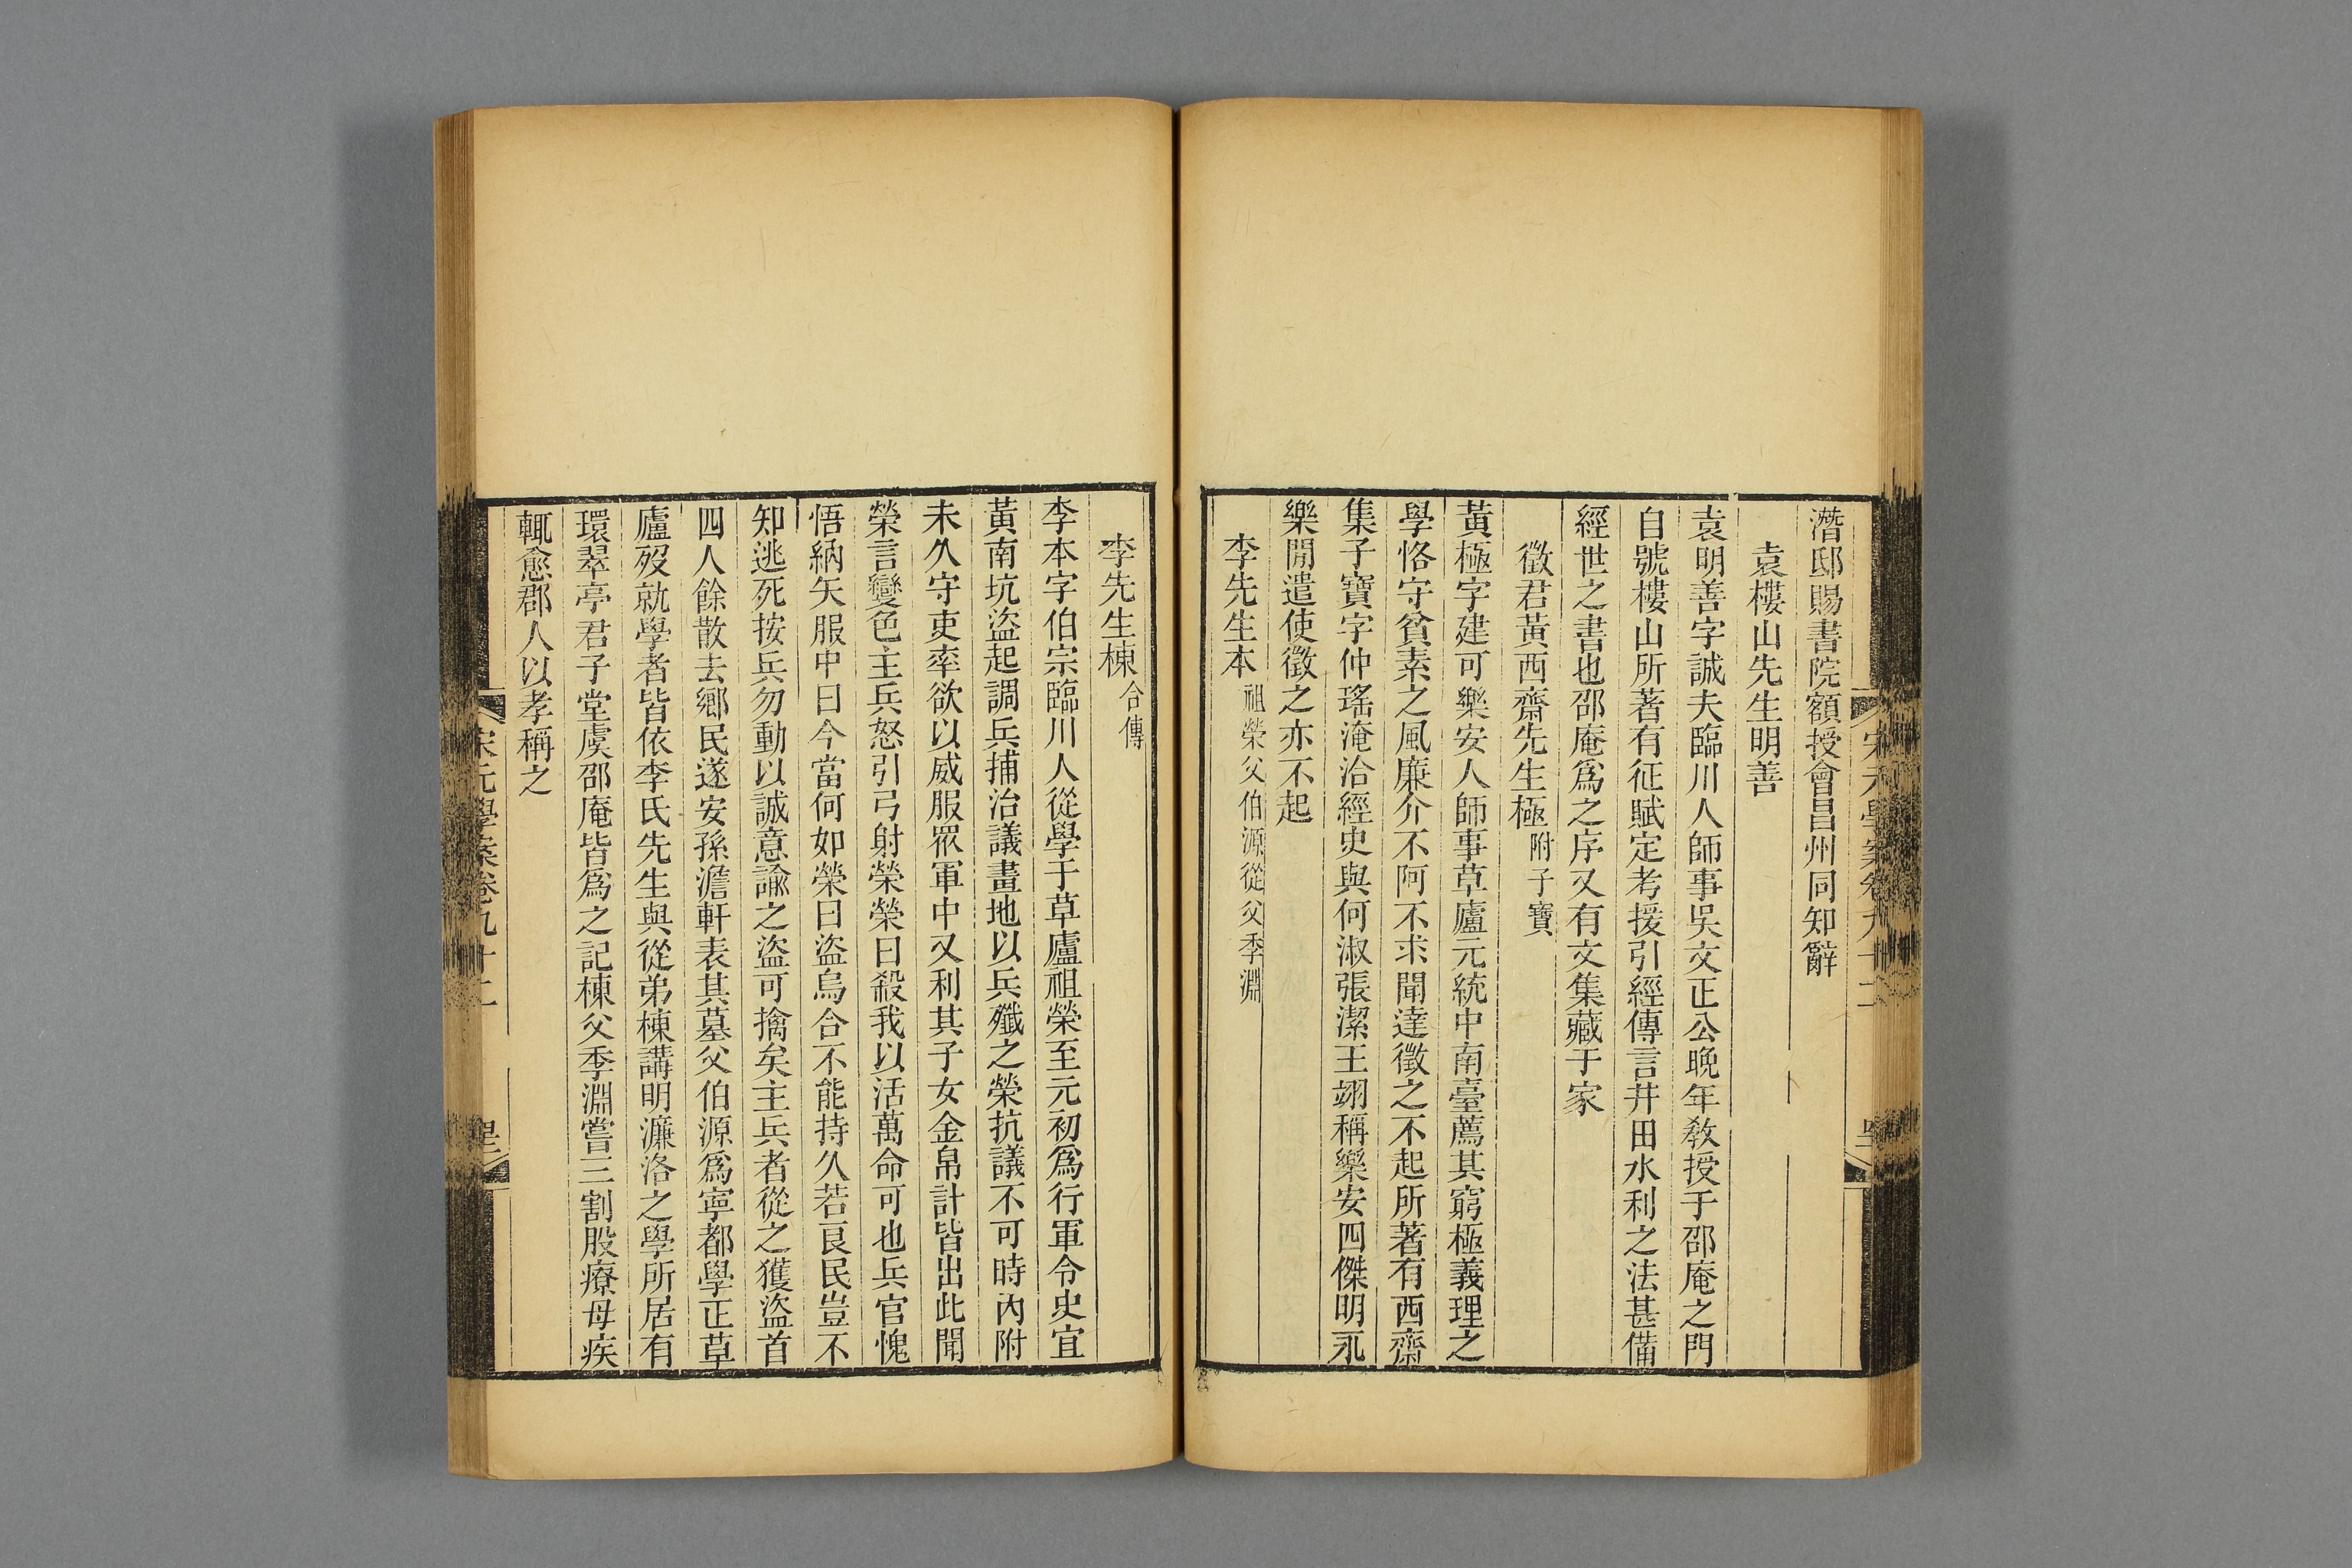 潛邸賜書院額授會昌州同知辭
袁樓山先生明善
袁明善字誠夫臨川人師事吳文正公晚年教授于邵庵之門
自號樓山所著有征賦定考援引經傳言井田水利之法甚備
經世之書也邵庵爲之序又有文集藏于家
徵君黃西齋先生極附子寶
黃極字建可樂安人師事草廬元統中南臺薦其窮極義理之
學恪守貧素之風廉介不阿不求聞達徵之不起所著有西齋
集子寶字仲瑤淹洽經史與何淑張潔王翊稱樂安四傑明永
樂閒遣使徵之亦不起
李先生本祖榮父伯源從父季淵
李先生棟合傳
李本字伯宗臨川人從學于草廬祖榮至元初爲行軍令史宜
黃南坑盜起調兵捕治議畫地以兵殲之榮抗議不可時內附
未久守吏率欲以威服眾軍中又利其子女金帛計皆出此聞
榮言變色主兵怒引弓射榮榮曰殺我以活萬命可也兵官愧
悟納矢服中曰今當何如榮曰盜烏合不能持久若良民豈不
知逃死按兵勿動以誠意諭之盜可擒矣主兵者從之獲盜首
四人餘散去鄉民遂安孫澹軒表其墓父伯源爲寧都學正草
廬歿就學者皆依李氏先生與從弟棟講明濂洛之學所居有
環翠亭君子堂虞邵庵皆爲之記棟父季淵嘗三割股療母疾
輒愈郡人以孝稱之
宋元學案卷九十二